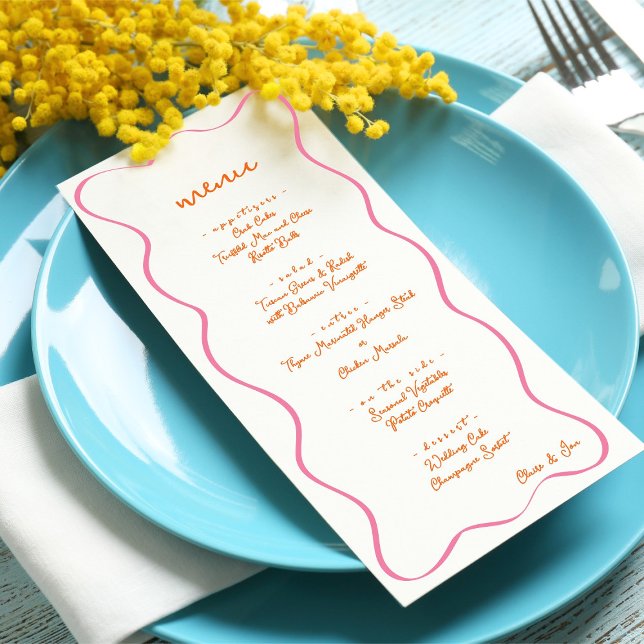 menu
- appetisers -
Crab Cakes
Truffled Mac and Cheese
Risotto Balls
- salad -
Tuscan Greens & Radish
with Balsamic Vinaigrette
- entree -
Thyme Marinated Hanger Steak
or
Chicken Marsala
- on the side -
Seasonal Vegetables
Potato Croquette
- dessert -
Wedding Cake
Champagne Sorbet
Claire & Ian